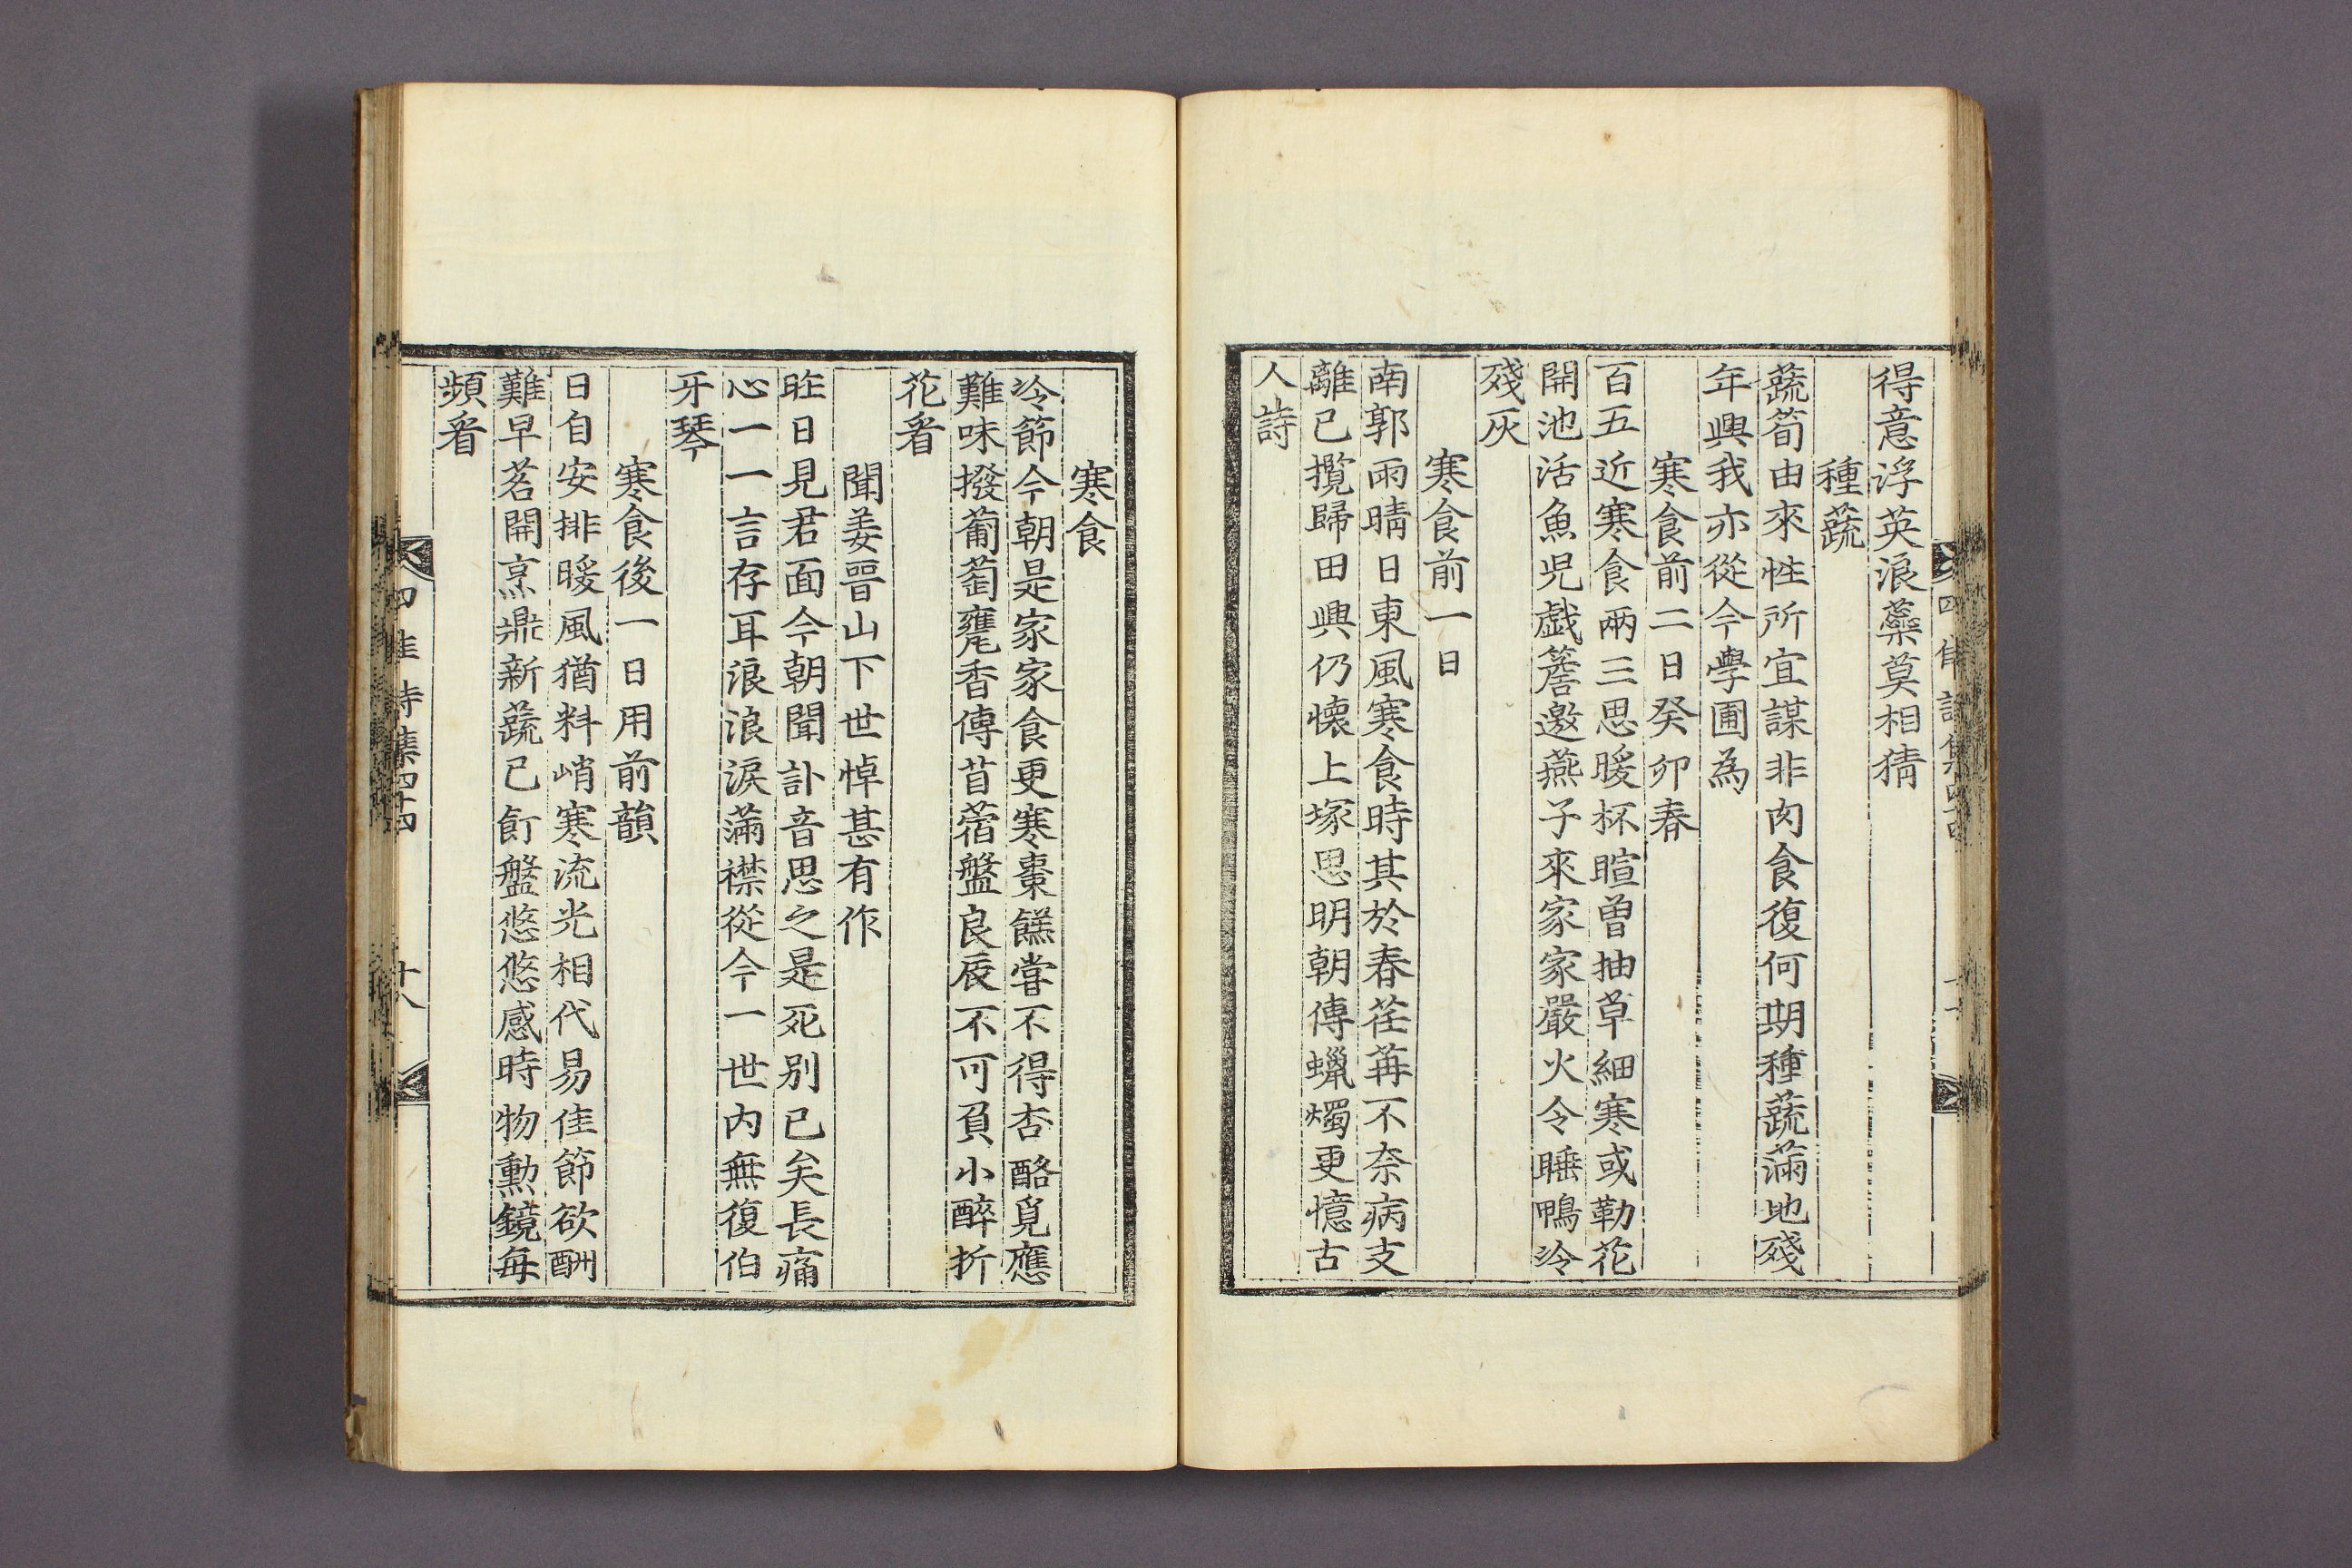 得意浮英浪蘂莫相猜
種蔬
蔬筍由來性所宜謀非肉食復何期種蔬滿地殘
年興我亦從今學圃為
寒食前二日癸卯春
百五近寒食兩三思暖杯暄曽抽草細寒或勒花
開池活魚児戯簷邀燕子來家家嚴火令睡鴨冷
殘灰
寒食前一日
南郭雨晴日東風寒食時其於春荏苒不奈病支
離已攬歸田興仍懐上塚思明朝傳蠟燭更憶古
人詩
寒食
冷節今朝是家家食更寒棗餻甞不得杏酪覓應
難味撥葡萄甕香傳苜蓿盤良辰不可負小醉折
花看
聞姜晉山下世悼甚有作
昨日見君面今朝聞訃音思之是死别已矣長痛
心一一言存耳浪浪淚滿襟從今一世内無復伯
牙琴
寒食後一日用前韻
日自安排暖風猶料峭寒流光相代易佳節欲酬
難早茗開烹鼎新蔬已飣盤悠悠感時物勲鏡毎
頻看
四佳詩集四十四
十八